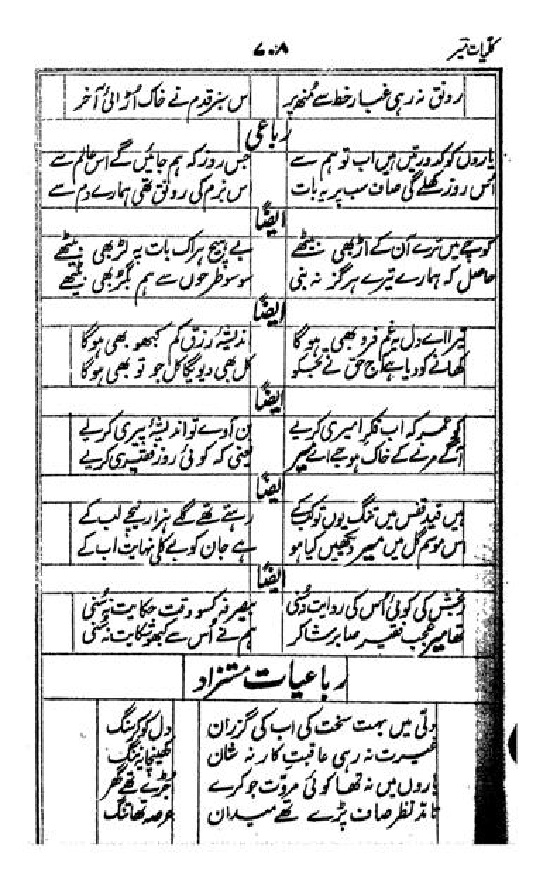 کلیات میر
۷۰۸
رونق نہ رہی غبار خط سے مُنھ پر
س سبز قدم نے خاک اُڑائی آخر
رباعی
یاروں کو کدورتیں ہیں اب تو ہم سے
جس روز کہ ہم جائیں گے اس عالم سے
اُس روز کھلے گی صاف سب پر یہ بات
س بزم کی رونق تھی ہمارے دم سے
ایضاً
کوچے میں ترے آن کے اڑ بھی بیٹھے
بے ہیچ ہراک بات پہ لڑ بھی بیٹھے
حاصل کہ ہمارے تیرے ہرگز نہ بنی
سو سو طرحوں سے ہم بگڑ بھی بیٹھے
ایضاً
تیرا اے دل یہ غم فرو بھی ہوگا
ندیشۂ رزق کم کبھو بھی ہوگا
کھانے کو دیا ہے آج حق نے تجکو
کل بھی دیویگا کل جو تو بھی ہوگا
ایضاً
کو عمر کہ اب فکر امیری کریے
ن آوے تو اندیشۂ پیری کریے
آگے مرنے کے خاک ہوجے اے میر
یعنی کہ کوئی روز فقیری کریے
ایضاً
ہیں قید قفس میں تنگ یوں تو کب کے
رہتے تھے گلے ہزار نیچے لب کے
اس موسم گل میں میر دیکھیں کیا ہو
ہے جان کو بے کلی نہایت اب کے
ایضاً
بخشش کی کوئی اُس کی روایت سُنی
پھر نہ کسو وقت حکایت نہ سُنی
تھا میر عجب فقیر صابر شاکر
ہم نے اُس سے کبھو شکایت نہ سُنی
رباعیات مستزاد
دلّی میں بہت سخت کی اب کی گزران
دل کو کر سنگ
غیرت نہ رہی عاقبت کار نہ شان
کھینچا یہ ننگ
یاروں میں نہ تھا کوئی مروّت جو کرے
جڑے تھے گھر
تا مد نظر صاف پڑے تھے میدان
عرصہ تھا تنگ